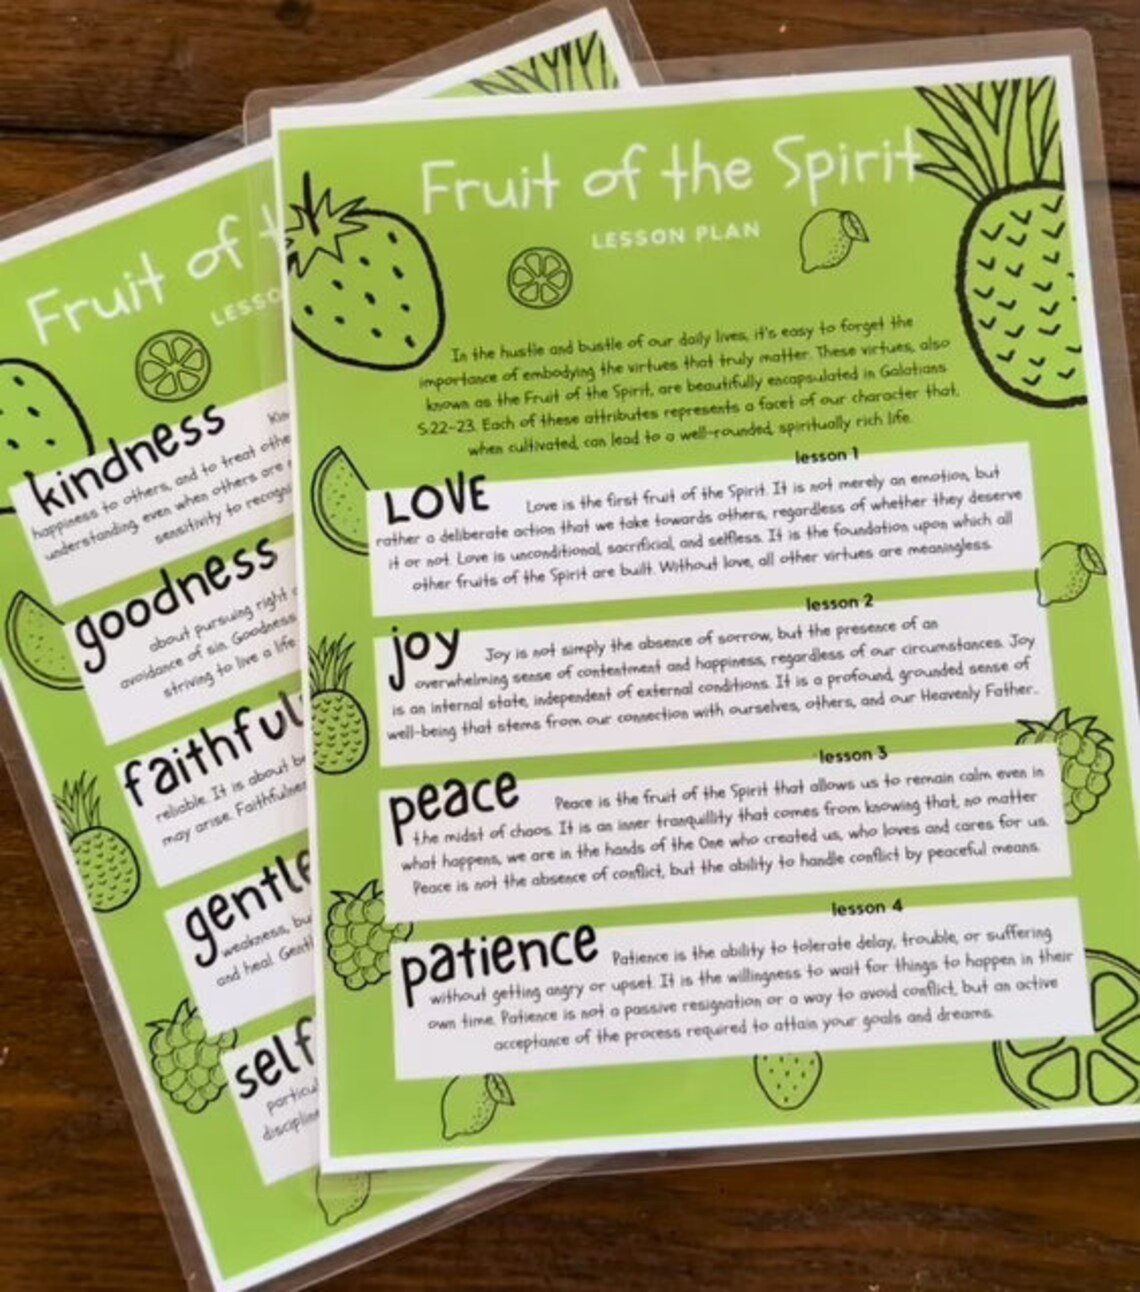 Fruit of the Spirit
LESSON PLAN
In the hustle and bustle of our daily lives, it's easy to forget the
importance of embodying the virtues that truly matter. These virtues, also
known as the Fruit of the Spirit, are beautifully encapsulated in Galatians
5:22-23. Each of these attributes represents a facet of our character that,
when cultivated, can lead to a well-rounded, spiritually rich life.
lesson 1
LOVE
Love is the first fruit of the Spirit. It is not merely an emotion, but
rather a deliberate action that we take towards others, regardless of whether they deserve
it or not. Love is unconditional, sacrificial, and selfless. It is the foundation upon which all
other fruits of the Spirit are built. Without love, all other virtues are meaningless.
lesson 2
joy
Joy is not simply the absence of sorrow, but the presence of an
overwhelming sense of contentment and happiness, regardless of our circumstances. Joy
is an internal state, independent of external conditions. It is a profound, grounded sense of
well-being that stems from our connection with ourselves, others, and our Heavenly Father.
lesson 3
peace
Peace is the fruit of the Spirit that allows us to remain calm even in
the midst of chaos. It is an inner tranquillity that comes from knowing that, no matter
what happens, we are in the hands of the One who created us, who loves and cares for us.
Peace is not the absence of conflict, but the ability to handle conflict by peaceful means.
lesson 4
patience
Patience is the ability to tolerate delay, trouble, or suffering
without getting angry or upset. It is the willingness to wait for things to happen in their
own time. Patience is not a passive resignation or a way to avoid conflict, but an active
acceptance of the process required to attain your goals and dreams.
Fruit of t
LESSO
kindness
Kin
happiness to others, and to treat othe
understanding, even when others are
sensitivity to recogni
goodness
about pursuing right
avoidance of sin. Goodness
striving to live a life
faithful
reliable. It is about b
may arise. Faithfulne
gentle
weakness, bu
and heal. Gentl
self
particul
disciplin